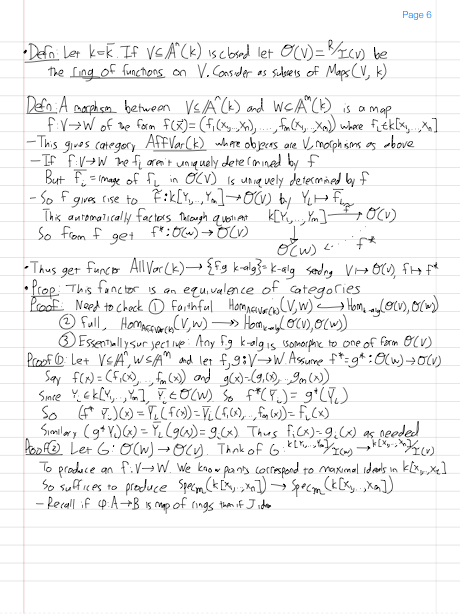 Page 6
• Defn: Let k=k̅. If V⊆𝔸ⁿ(k) is closed let O(V)=R/I(V) be
the ring of functions on V. Consider as subsets of Maps(V, k)
Defn: A morphism between V⊆𝔸ⁿ(k) and W⊆𝔸ᵐ(k) is a map
f:V→W of the form f(x⃗)=(f₁(x₁,...,xₙ),...,fₘ(x₁,...,xₙ)) where fᵢ∈k[x₁,...,xₙ]
- This gives category AffVar(k) where objects are V, morphisms as above
- If f:V→W the fᵢ aren't uniquely determined by f
But f̅ᵢ = image of fᵢ in O(V) is uniquely determined by f
- So f gives rise to f̃:k[Y₁,...,Yₘ]→O(V) by Yᵢ↦f̅ᵢ
This automatically factors through quotient k[Y₁,...,Yₘ]→O(V)
So from f get f*:O(W)→O(V)
O(W) f*
• Thus get functor AllVar(k)→{fg k-alg}=k-alg sending V↦O(V), f↦f*
• Prop: This functor is an equivalence of categories
Proof: Need to check ① Faithful Hom_AffVar(k)(V,W)↪Hom_k-alg(O(V),O(W))
② Full, Hom_AffVar(k)(V,W)↠Hom_k-alg(O(V),O(W))
③ Essentially surjective: Any fg k-alg is isomorphic to one of form O(V)
Proof①: Let V⊆𝔸ⁿ, W⊆𝔸ᵐ and let f,g:V→W Assume f*=g*:O(W)→O(V)
Say f(x)=(f₁(x),...,fₘ(x)) and g(x)=(g₁(x),...,gₘ(x))
Since Yᵢ∈k[Y₁,...,Yₘ], Y̅ᵢ∈O(W) So f*(Y̅ᵢ)=g*(Y̅ᵢ)
So (f* Y̅ᵢ)(x)=Y̅ᵢ(f(x))=Y̅ᵢ(f₁(x),...,fₘ(x))=fᵢ(x)
Similary (g*Yᵢ)(x)=Y̅ᵢ(g(x))=gᵢ(x). Thus fᵢ(x)=gᵢ(x) as needed
Proof②: Let G:O(W)→O(V). Think of G:k[Y₁,...,Yₘ]/I(W)→k[x₁,...,xₙ]/I(V)
To produce an f:V→W. We know points correspond to maximal ideals in
So suffices to produce Specm(k[x₁,...,xₙ])→Specm(k[x₁,...,xₘ])
- Recall if φ:A→B is map of rings then if J